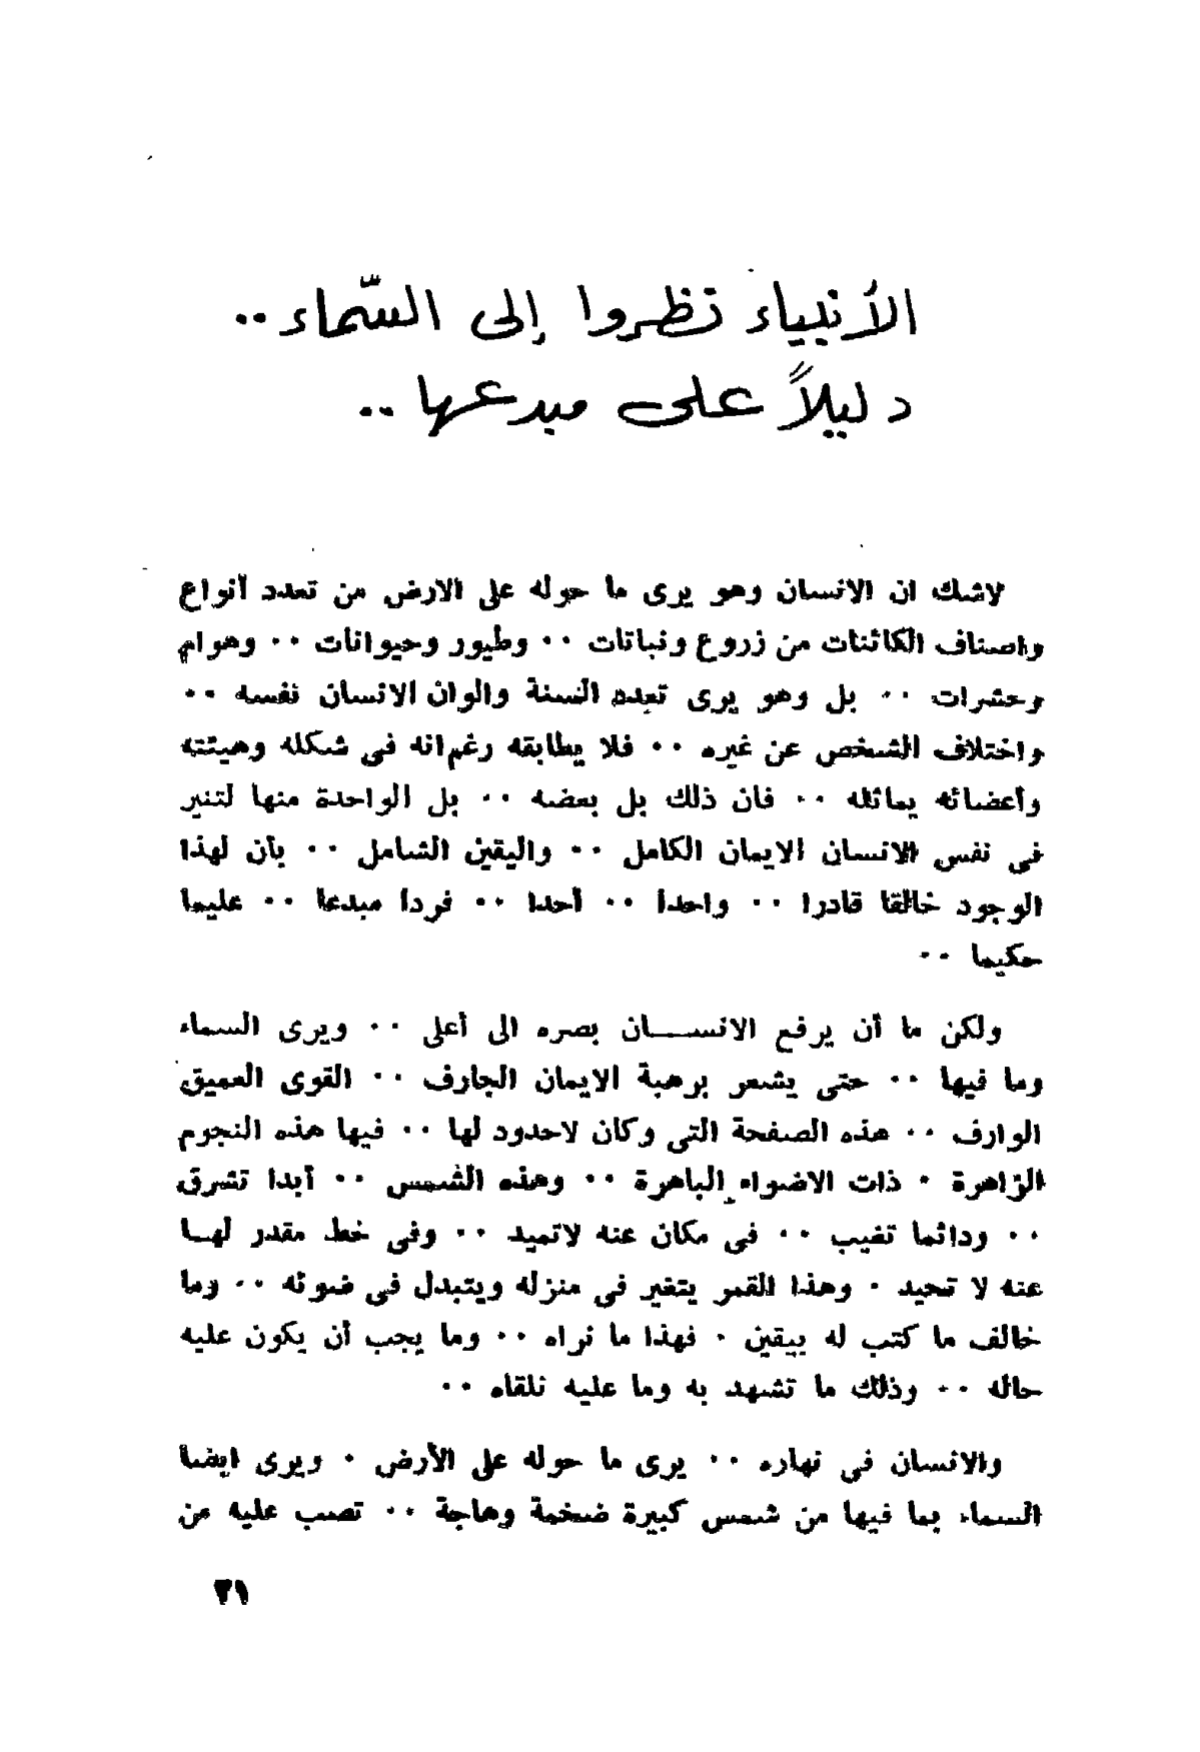 الأنبياء نظروا إلى السّماء ..
دليلاً على مبدعها ..
لاشك ان الانسان وهو يرى ما حوله على الارض من تعدد أنواع
واصناف الكائنات من زروع ونباتات ٠٠ وطيور وحيوانات ٠٠ وهوام
وحشرات ٠٠ بل وهو يرى تعدد السنة والوان الانسان نفسه ٠٠
واختلاف الشخص عن غيره ٠٠ فلا يطابقه رغم انه فى شكله وهيئته
وأعضائه يماثله ٠٠ فان ذلك بل بعضه ٠٠ بل الواحدة منها لتنير
فى نفس الانسان الايمان الكامل ٠٠ واليقين الشامل ٠٠ بأن لهذا
الوجود خالقا قادرا ٠٠ واحدا ٠٠ أحدا ٠٠ فردا مبدعا ٠٠ عليما
حكيما ٠٠
ولكن ما أن يرفع الانســـان بصره الى أعلى ٠٠ ويرى السماء
وما فيها ٠٠ حتى يشعر برهبة الايمان الجارف ٠٠ القوى العميق
الوارف ٠٠ هذه الصفحة التى وكان لاحدود لها ٠٠ فيها هذه النجوم
الزاهرة ٠ ذات الاضواء الباهرة ٠٠ وهذه الشمس ٠٠ أبدا تشرق
٠٠ ودائما تغيب ٠٠ فى مكان عنه لاتميد ٠٠ وفى خط مقدر لهــا
عنه لا تحيد ٠ وهذا القمر يتغير فى منزله ويتبدل فى ضوئه ٠٠ وما
خالف ما كتب له بيقين ٠ فهذا ما نراه ٠٠ وما يجب أن يكون عليه
حاله ٠٠ وذلك ما تشهد به وما عليه نلقاه ٠٠
والانسان فى نهاره ٠٠ يرى ما حوله على الأرض ٠ ويرى ايضا
السماء بما فيها من شمس كبيرة ضخمة وهاجة ٠٠ تصب عليه من
٢١